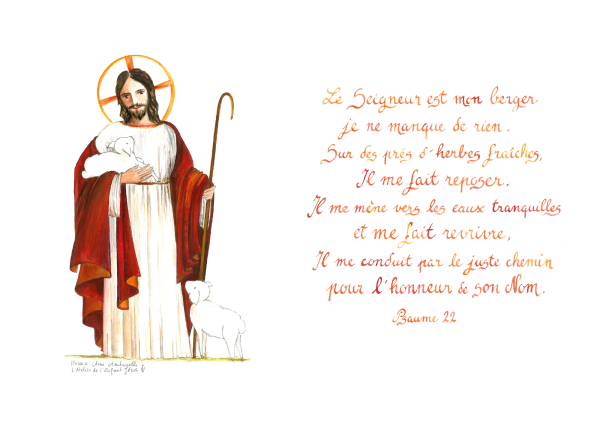 Le Seigneur est mon berger
je ne manque de rien.
Sur des prés d'herbes fraîches,
Il me fait reposer.
Il me mène vers les eaux tranquilles
et me fait revivre,
Il me conduit par le juste chemin
pour l'honneur de son Nom.
Psaume 22
L'Atelier de l'Enfant Jésus